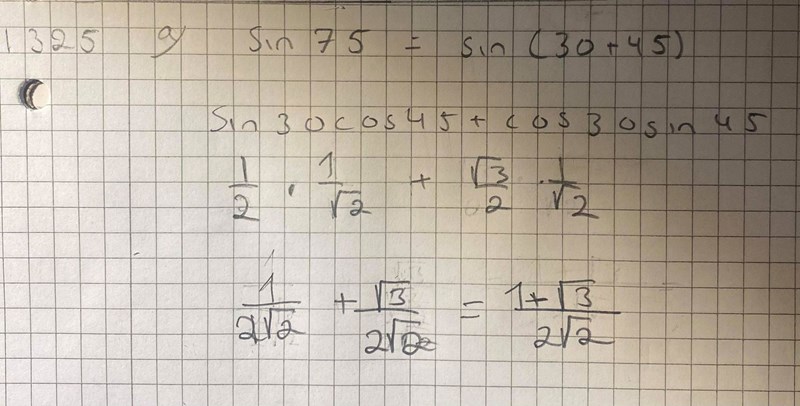 1325 a) sin 75 = sin (30+45)
sin 30 cos 45 + cos 30 sin 45
1/2 · 1/√2 + √3/2 · 1/√2
1/2√2 + √3/2√2 = 1+√3/2√2